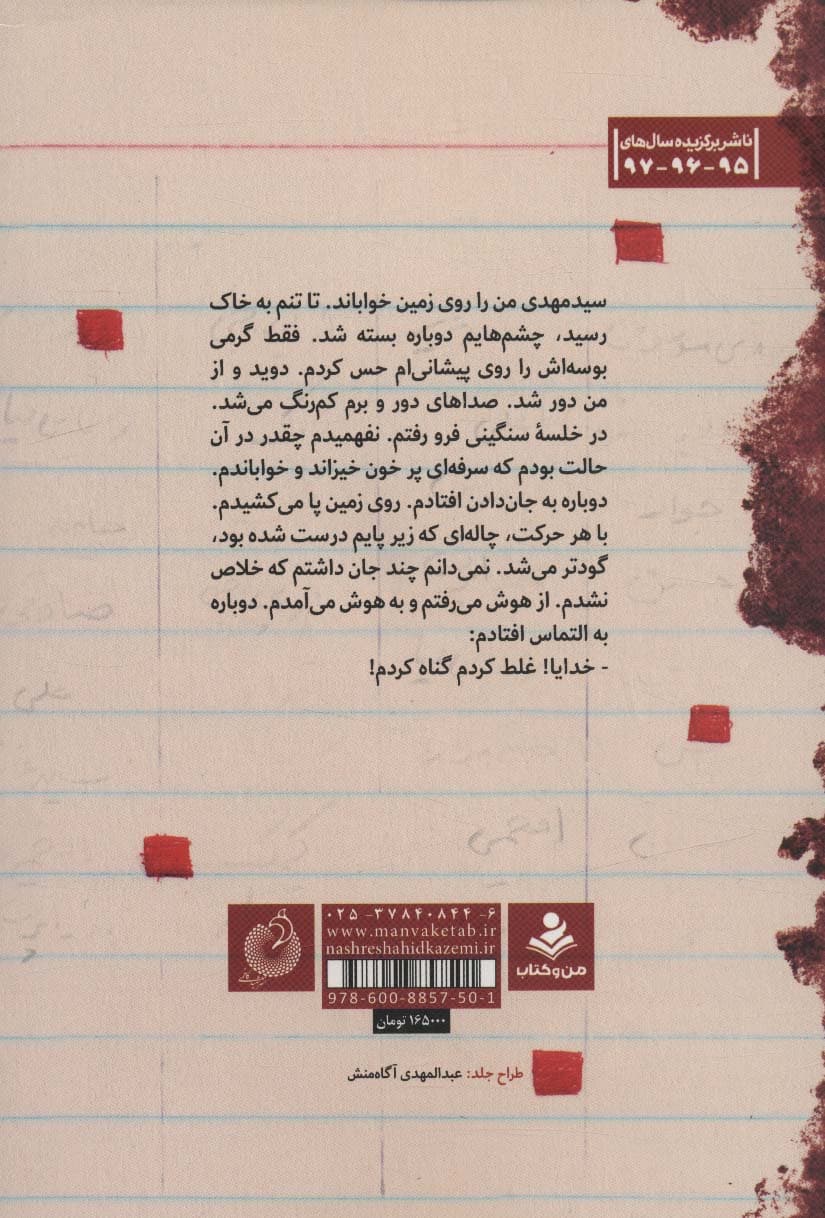 ناشر برگزیده سال‌های
۹۵-۹۶-۹۷
سیدمهدی من را روی زمین خواباند. تا تنم به خاک
رسید، چشم‌هایم دوباره بسته شد. فقط گرمی
بوسه‌اش را روی پیشانی‌ام حس کردم. دوید و از
من دور شد. صداهای دور و برم کم‌رنگ می‌شد.
در خلسهٔ سنگینی فرو رفتم. نفهمیدم چقدر در آن
حالت بودم که سرفه‌ای پر خون خیزاند و خواباندم.
دوباره به جان‌دادن افتادم. روی زمین پا می‌کشیدم.
با هر حرکت، چاله‌ای که زیر پایم درست شده بود،
گودتر می‌شد. نمی‌دانم چند جان داشتم که خلاص
نشدم. از هوش می‌رفتم و به هوش می‌آمدم. دوباره
به التماس افتادم:
- خدایا! غلط کردم گناه کردم!
من و کتاب
۰۲۵-۳۷۸۴۰۸۴۴-۶
www.manvaketab.ir
nashreshahidkazemi.ir
978-600-8857-50-1
۱۶۵۰۰۰ تومان
طراح جلد: عبدالمهدی آگاه‌منش